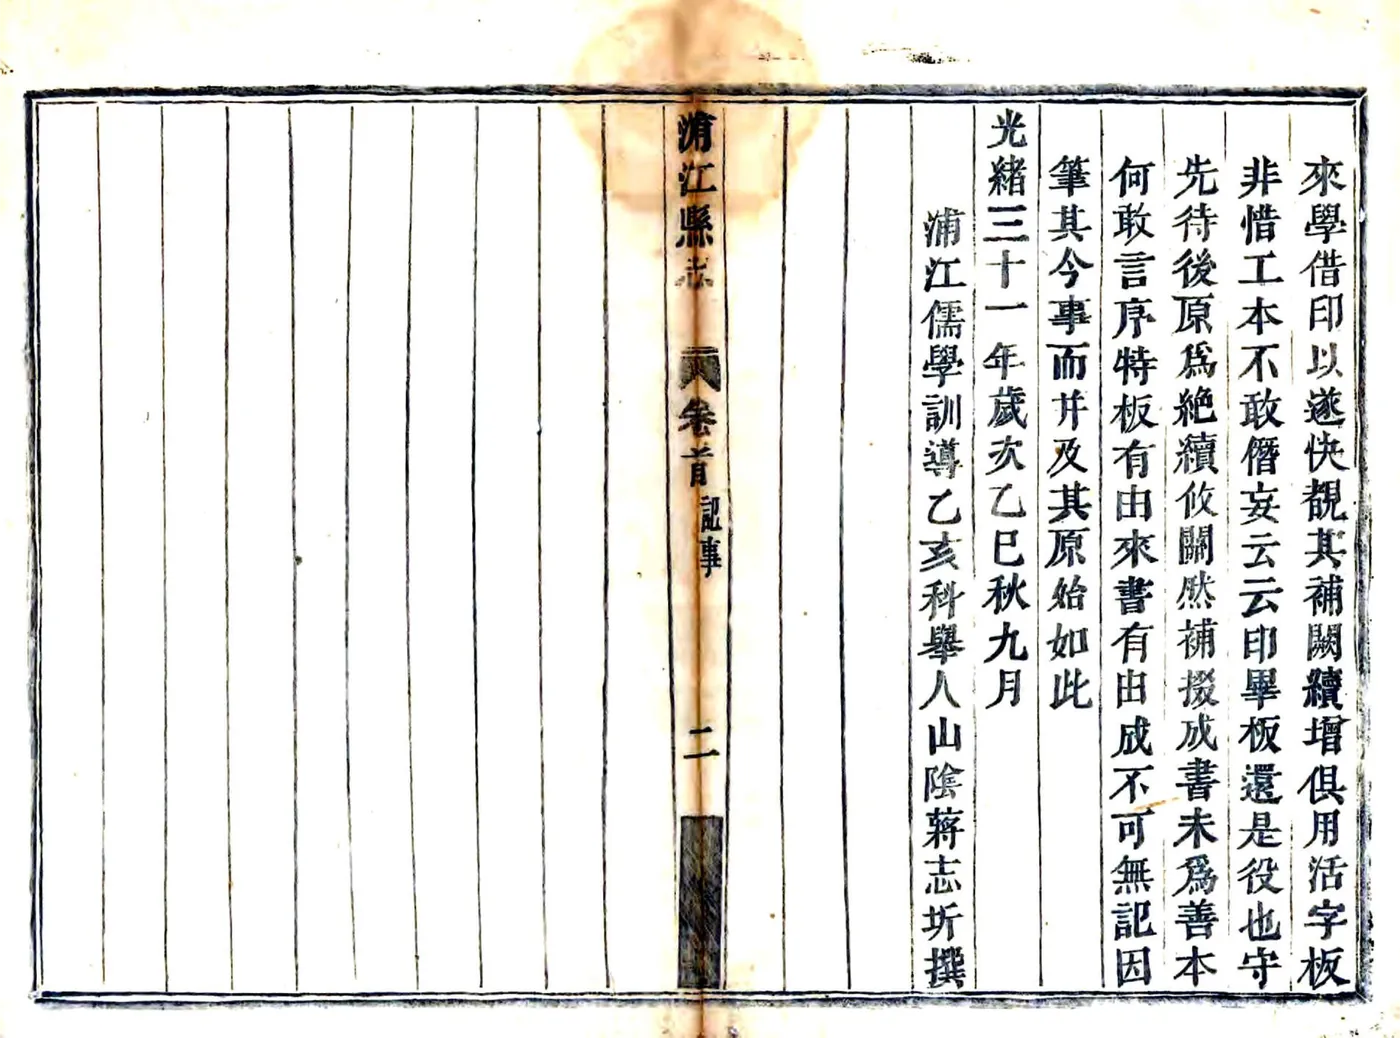 來學借印以遂快覩其補闕續增俱用活字板
非惜工本不敢僭妄云云印畢板還是役也守
先待後原爲絶續攸關然補掇成書未爲善本
何敢言序特板有由來書有由成不可無記因
筆其今事而并及其原始如此
光緒三十一年歲次乙巳秋九月
浦江儒學訓導乙亥科舉人山陰蔣志圻撰
浦江縣志
卷首
記事
二